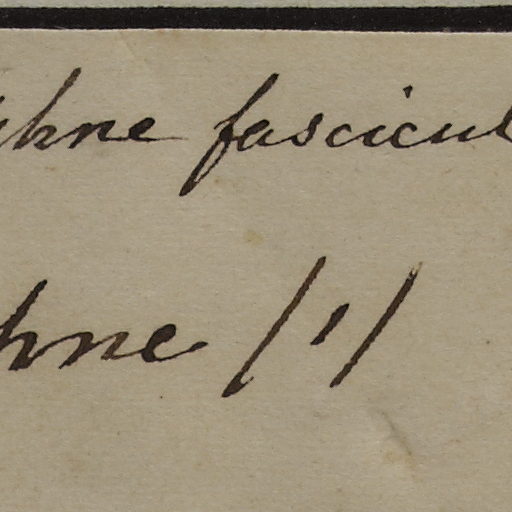 phne fascicul
hne /1/